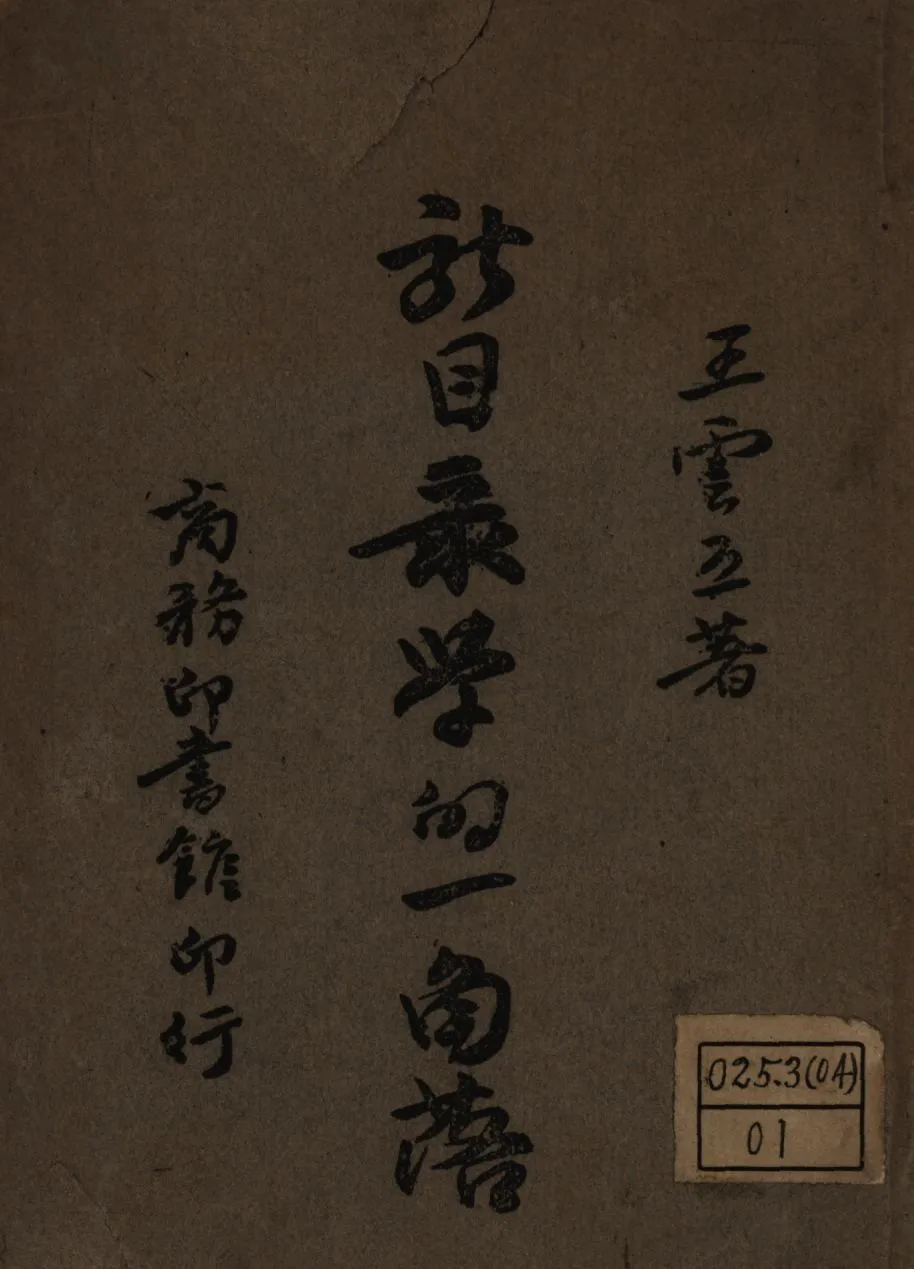 王雲五著
新目录学的一角落
商務印書館印行
025.3(04)
01